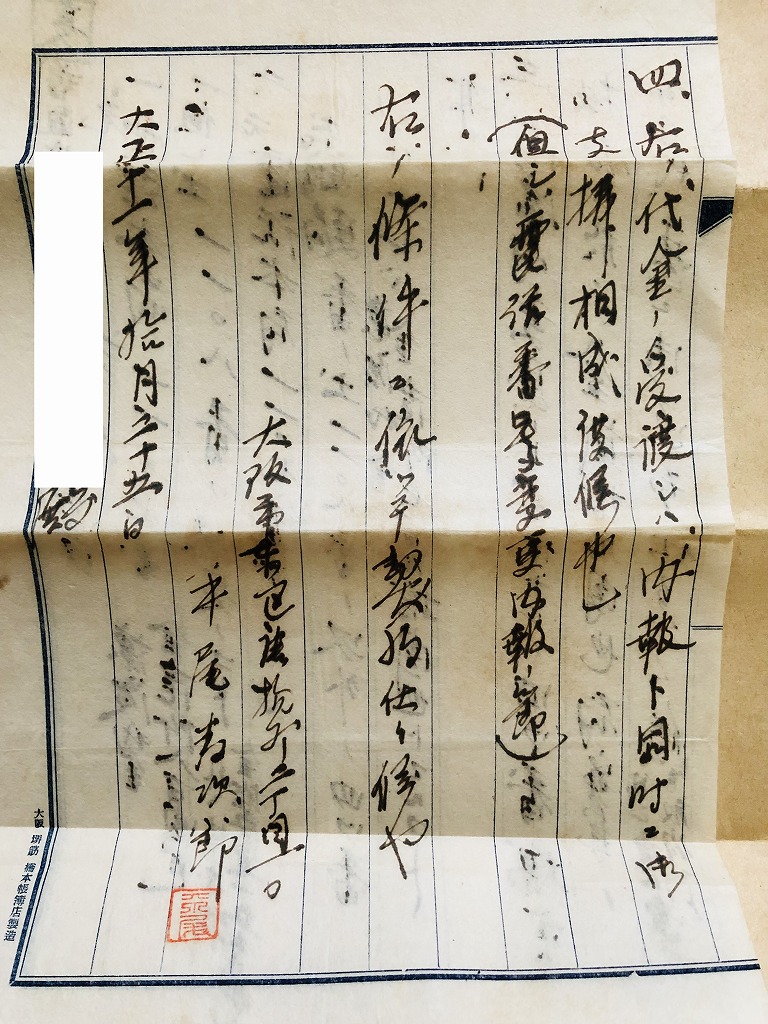 四、右ノ代金ノ受渡シハ、内報ト同時ニ御
支拂相成度候也
(但シ電話番号変更内報ノ節)
右ノ條件ニ依リ契約仕リ候也
大阪市東区
平尾 次郎
大正十一年拾月二十五日
殿
大阪 堺筋 橋本帳簿店製造